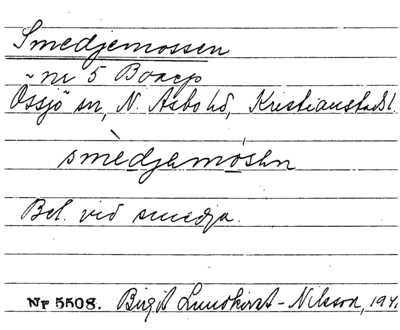 Smedjemossen
~ nr 5 Boarp
Össjö sn, N. Åsbo hd, Kristianstads l.
smèdjemósen
Bel. vid smedja.
Nr 5508. Birgit Lundkvist-Nilsson, 194.